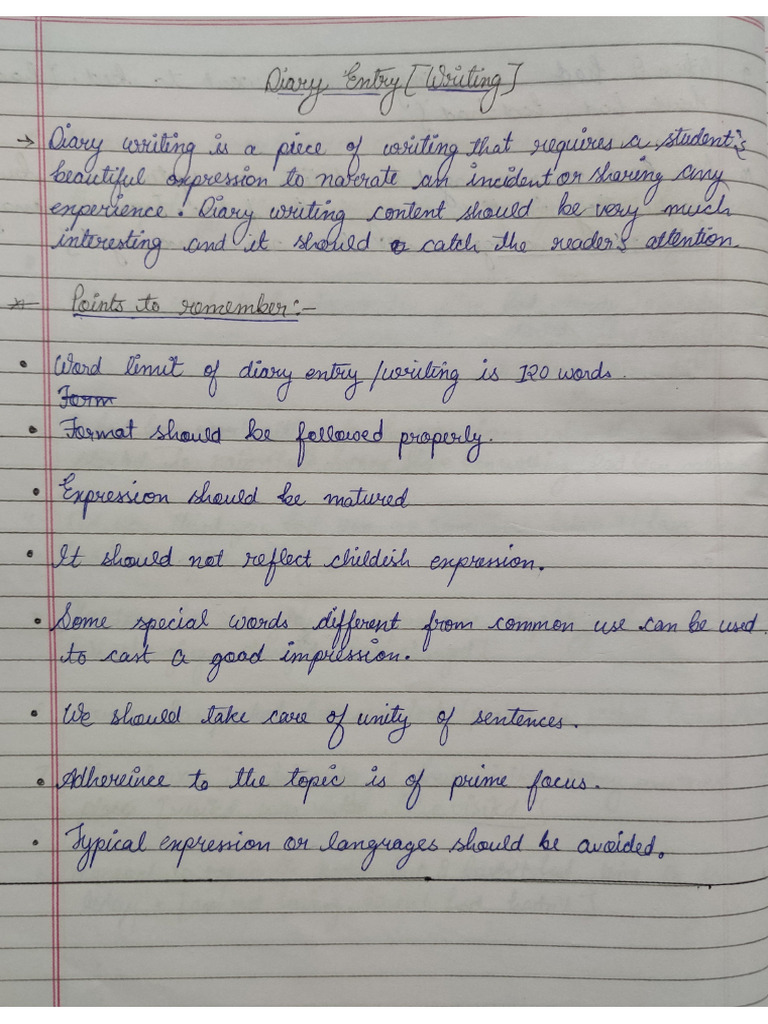 Diary Entry [Writing]
→ Diary writing is a piece of writing that requires a student's
beautiful expression to narrate an incident or sharing any
experience. Diary writing content should be very much
interesting and it should catch the reader's attention.
* Points to remember:-
• Word limit of diary entry/writing is 120 words.
Form
• Format should be followed properly.
• Expression should be matured
• It should not reflect childish expression.
• Some special words different from common use can be used
to cast a good impression.
• We should take care of unity of sentences.
• Adhereince to the topic is of prime focus.
• Typical expression or languages should be avoided.